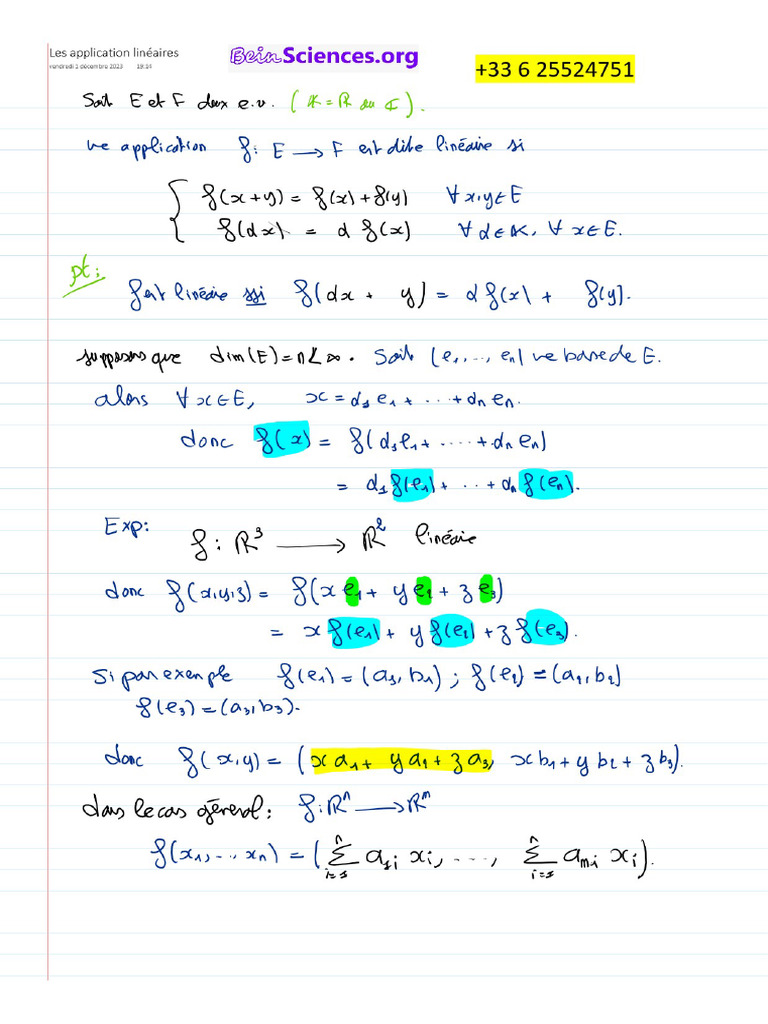 Les application linéaires
vendredi 1 décembre 2023 19:14
BeinSciences.org
+33 6 25524751
Soit E et F deux e.v. (K = ℝ ou ℂ).
une application f : E ⟶ F est dite linéaire si
{ f(x+y) = f(x) + f(y) ∀ x,y ∈ E
f(αx) = α f(x) ∀ α ∈ K, ∀ x ∈ E.
pt:
f est linéaire ssi f(αx + y) = α f(x) + f(y).
supposons que dim(E) = n < ∞. Soit (e₁, ..., eₙ) une base de E.
alors ∀ x ∈ E, x = α₁ e₁ + ... + αₙ eₙ.
donc f(x) = f(α₁e₁ + ..... + αₙ eₙ)
= α₁ f(e₁) + ... + αₙ f(eₙ).
Exp: f : ℝ³ ⟶ ℝ² linéaire
donc f(x,y,z) = f(x e₁ + y e₂ + z e₃)
= x f(e₁) + y f(e₂) + z f(e₃).
Si par exemple f(e₁) = (a₁, b₁) ; f(e₂) = (a₂, b₂)
f(e₃) = (a₃, b₃).
donc f(x,y) = (x a₁ + y a₂ + z a₃, x b₁ + y b₂ + z b₃).
dans le cas général : f : ℝⁿ ⟶ ℝᵐ
f(x₁, ..., xₙ) = (∑ᵢ₌₁ⁿ a₁ᵢ xᵢ, ..., ∑ᵢ₌₁ⁿ aₘᵢ xᵢ).